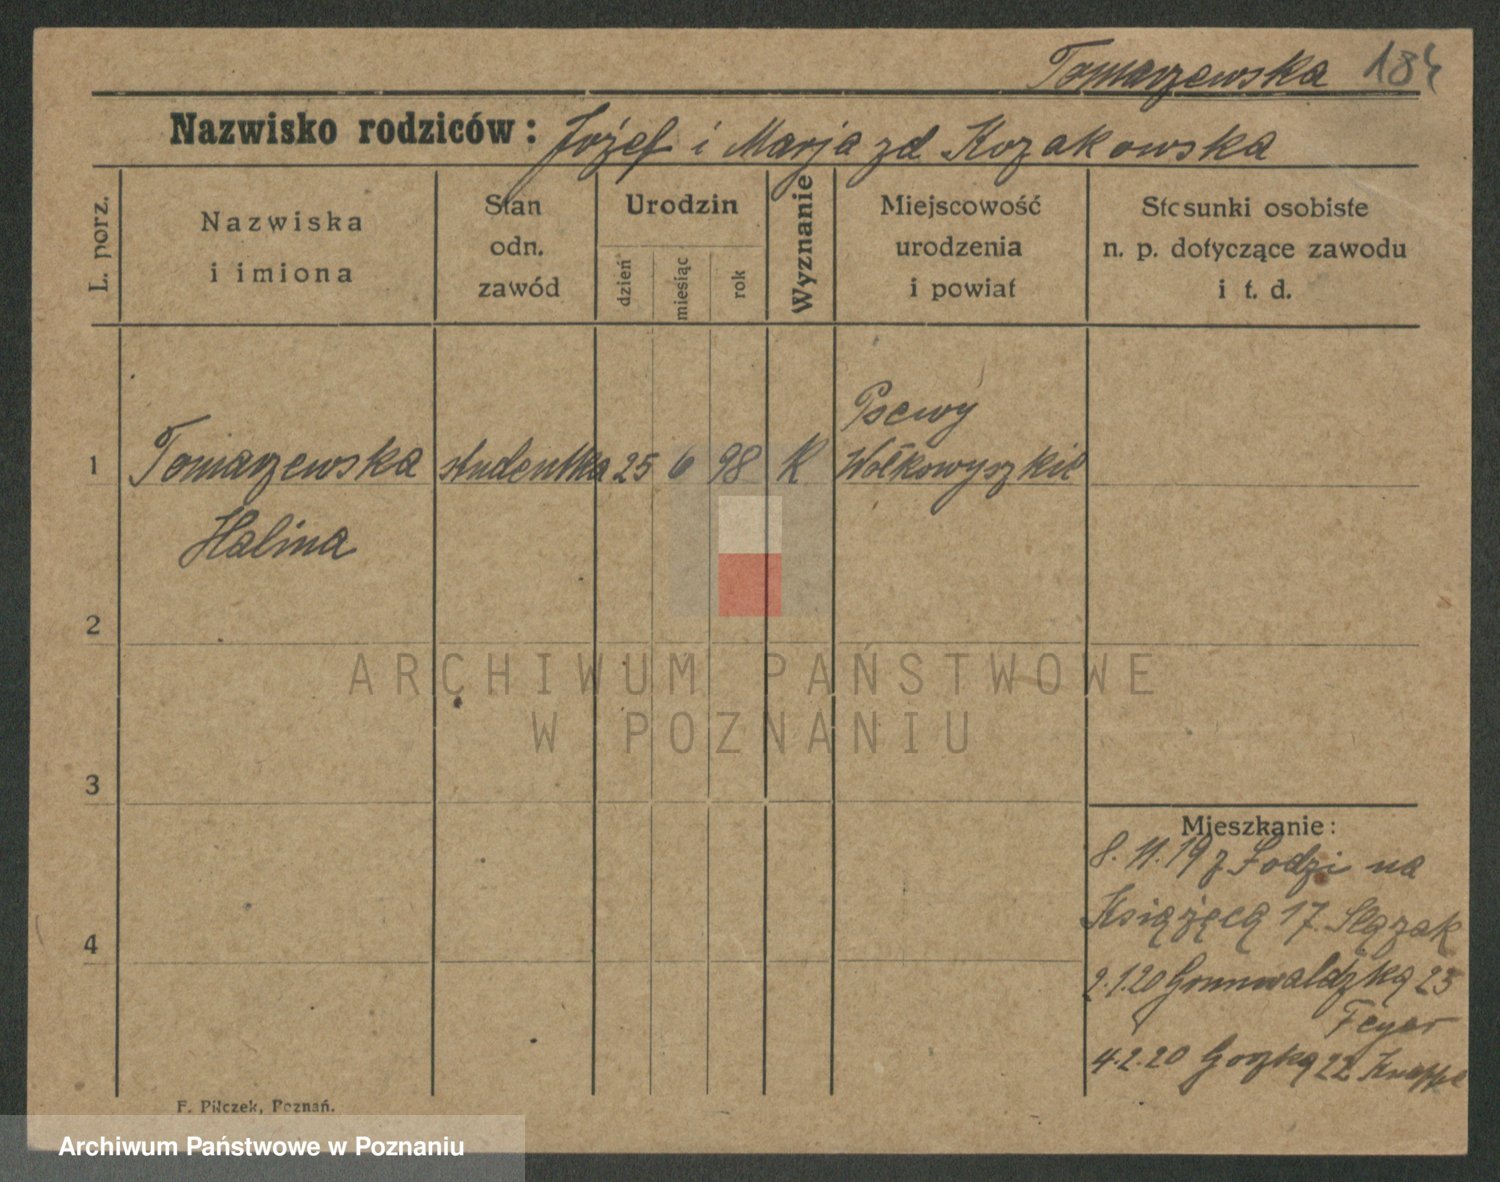 Tomarzewska 184
Nazwisko rodziców: Józef i Marja zd Kozakowska
L. porz.
Nazwiska
i imiona
Stan
odn.
zawód
Urodzin
dzień
miesiąc
rok
Wyznanie
Miejscowość
urodzenia
i powiat
Stosunki osobiste
n. p. dotyczące zawodu
i t. d.
Pacewy
1 Tomarzewska studentka 25 6 98 K Wołkowyszkil
Halina
2
ARCHIWUM PAŃSTWOWE
W POZNANIU
3
Mieszkanie:
8. 11. 19 z Łodzi na
4
Książęcą 17. Ślązak
2.1.20 Grunwaldzką 25
Feyer
4.2.20 22
F. Pilczek, Poznań.
Archiwum Państwowe w Poznaniu